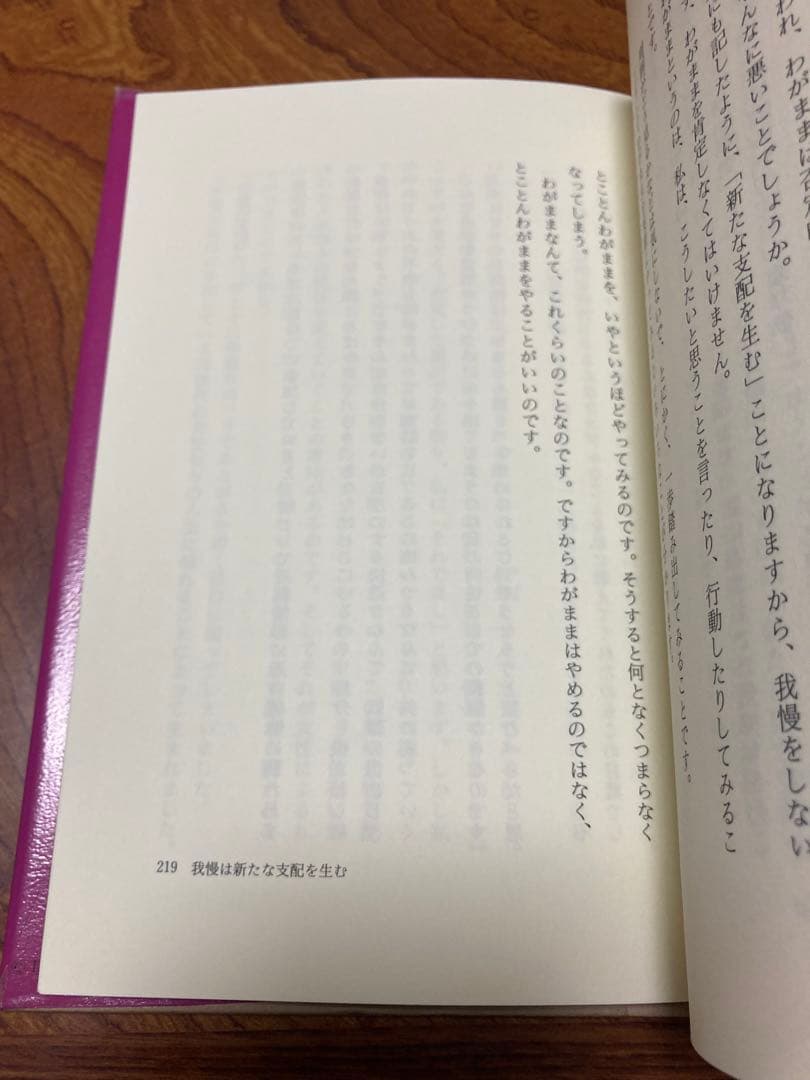 われ、わがまま
んなに悪いことでしょうか。
にも記したように、「新たな支配を生む」ことになりますから、我慢をしない
、わがままを肯定しなくてはいけません。
がままというのは、私は、こうしたいと思うことを言ったり、行動したりしてみるこ
とです。
としないで、とにかく、一歩踏み出してみることです。
とことんわがままを、いやというほどやってみるのです。そうすると何となくつまらなく
なってしまう。
わがままなんて、これくらいのことなのです。ですからわがままはやめるのではなく、
とことんわがままをやることがいいのです。
219 我慢は新たな支配を生む